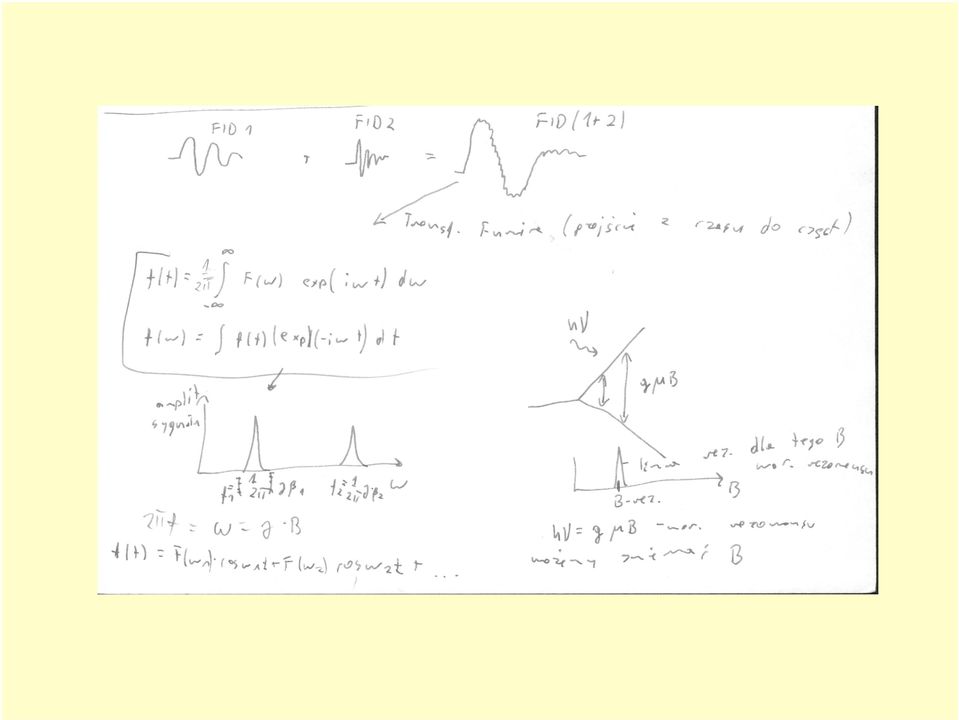 FID 1 , FID 2 = FID (1+2)
Transf. Furira (przejście z czasu do częst)
f(t) = 1/2π ∫ F(ω) exp(iωt) dω
∞
-∞
f(ω) = ∫ f(t) (exp)(-iωt) dt
amplit
sygnału
ω
2πf = ω = g·B
f(t) = F(ω1)·cosω1t + F(ω2) cosω2t + ...
hν
gμB
rez. dla tego B
war. rezonansu
B
B-rez.
hν = gμB - war. rezonansu
możemy zmieniać B